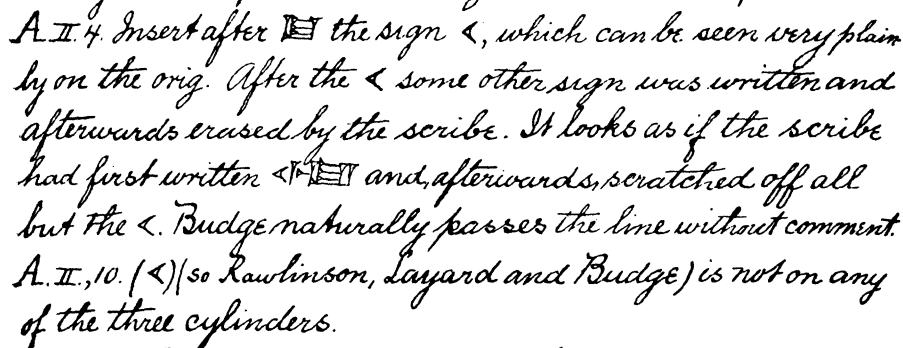 A.II.4. Insert after the sign 𒌋, which can be seen very plain
ly on the orig. After the 𒌋 some other sign was written and
afterwards erased by the scribe. It looks as if the scribe
had first written and, afterwards, scratched off all
but the 𒌋. Budge naturally passes the line without comment.
A.II.,10. (𒌋) (so Rawlinson, Layard and Budge) is not on any
of the three cylinders.